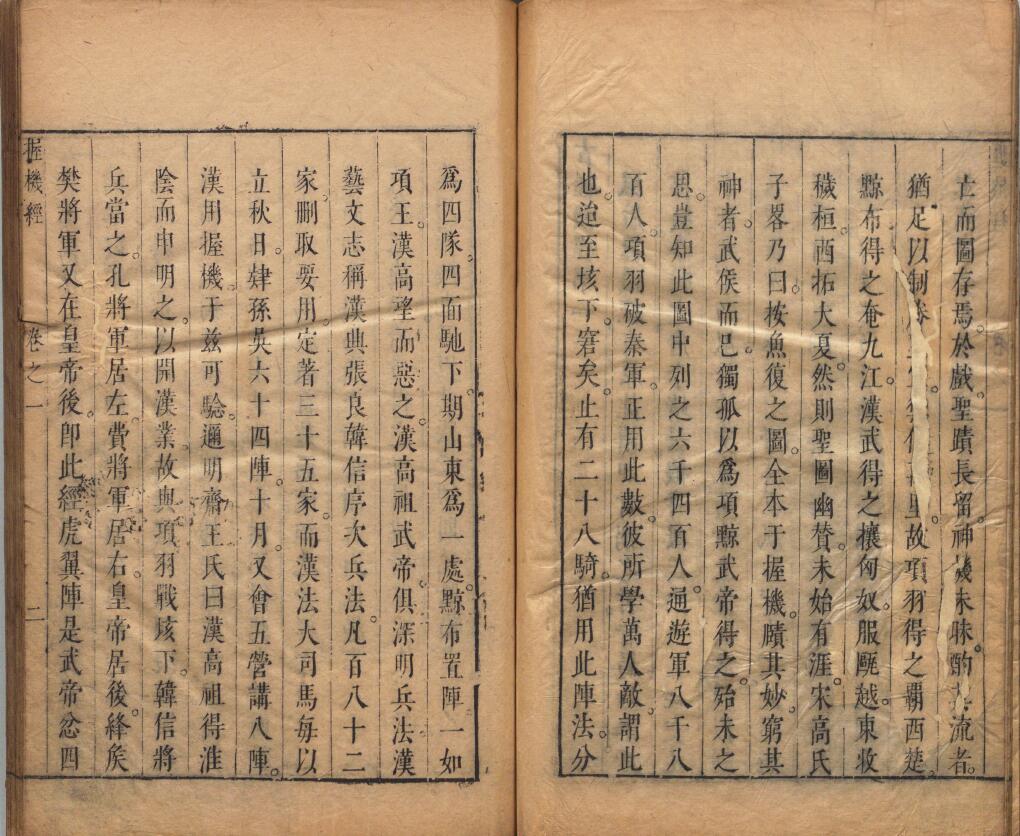 亡而圖存焉。於戲聖蹟長留。神幾未昧。酌其流者。
猶足以制勝故項羽得之覇西楚。
黥布得之奄九江。漢武得之攘匈奴。服甌越。東收
穢桓。西拓大夏。然則聖圖幽贊。未始有涯。宋高氏
子畧乃曰。按魚復之圖。全本于握機。賾其妙。窮其
神者。武侯而已。獨孤以爲項黥武帝得之。殆未之
思。豈知此圖中列之六千四百人。通遊軍八千八
百人。項羽破秦軍。正用此數。彼所學萬人敵。謂此
也。迨至垓下。窘矣。止有二十八騎。猶用此陣法。分
爲四隊。四面馳下。期山東爲一處。黥布置陣一如
項王。漢高望而惡之。漢高祖武帝。俱深明兵法。漢
藝文志稱漢典張良韓信序次兵法。凡百八十二
家。刪取要用。定著三十五家。而漢法大司馬每以
立秋日。肄孫吳六十四陣。十月。又會五營講八陣。
漢用握機。于兹可騐。邇明齋王氏曰漢高祖得淮
陰而申明之。以開漢業。故與項羽戰垓下。韓信將
兵當之。孔將軍居左。費將軍居右。皇帝居後。絳矦
樊將軍又在皇帝後。卽此經虎翼陣。是武帝忿四
握機經 卷之一 二